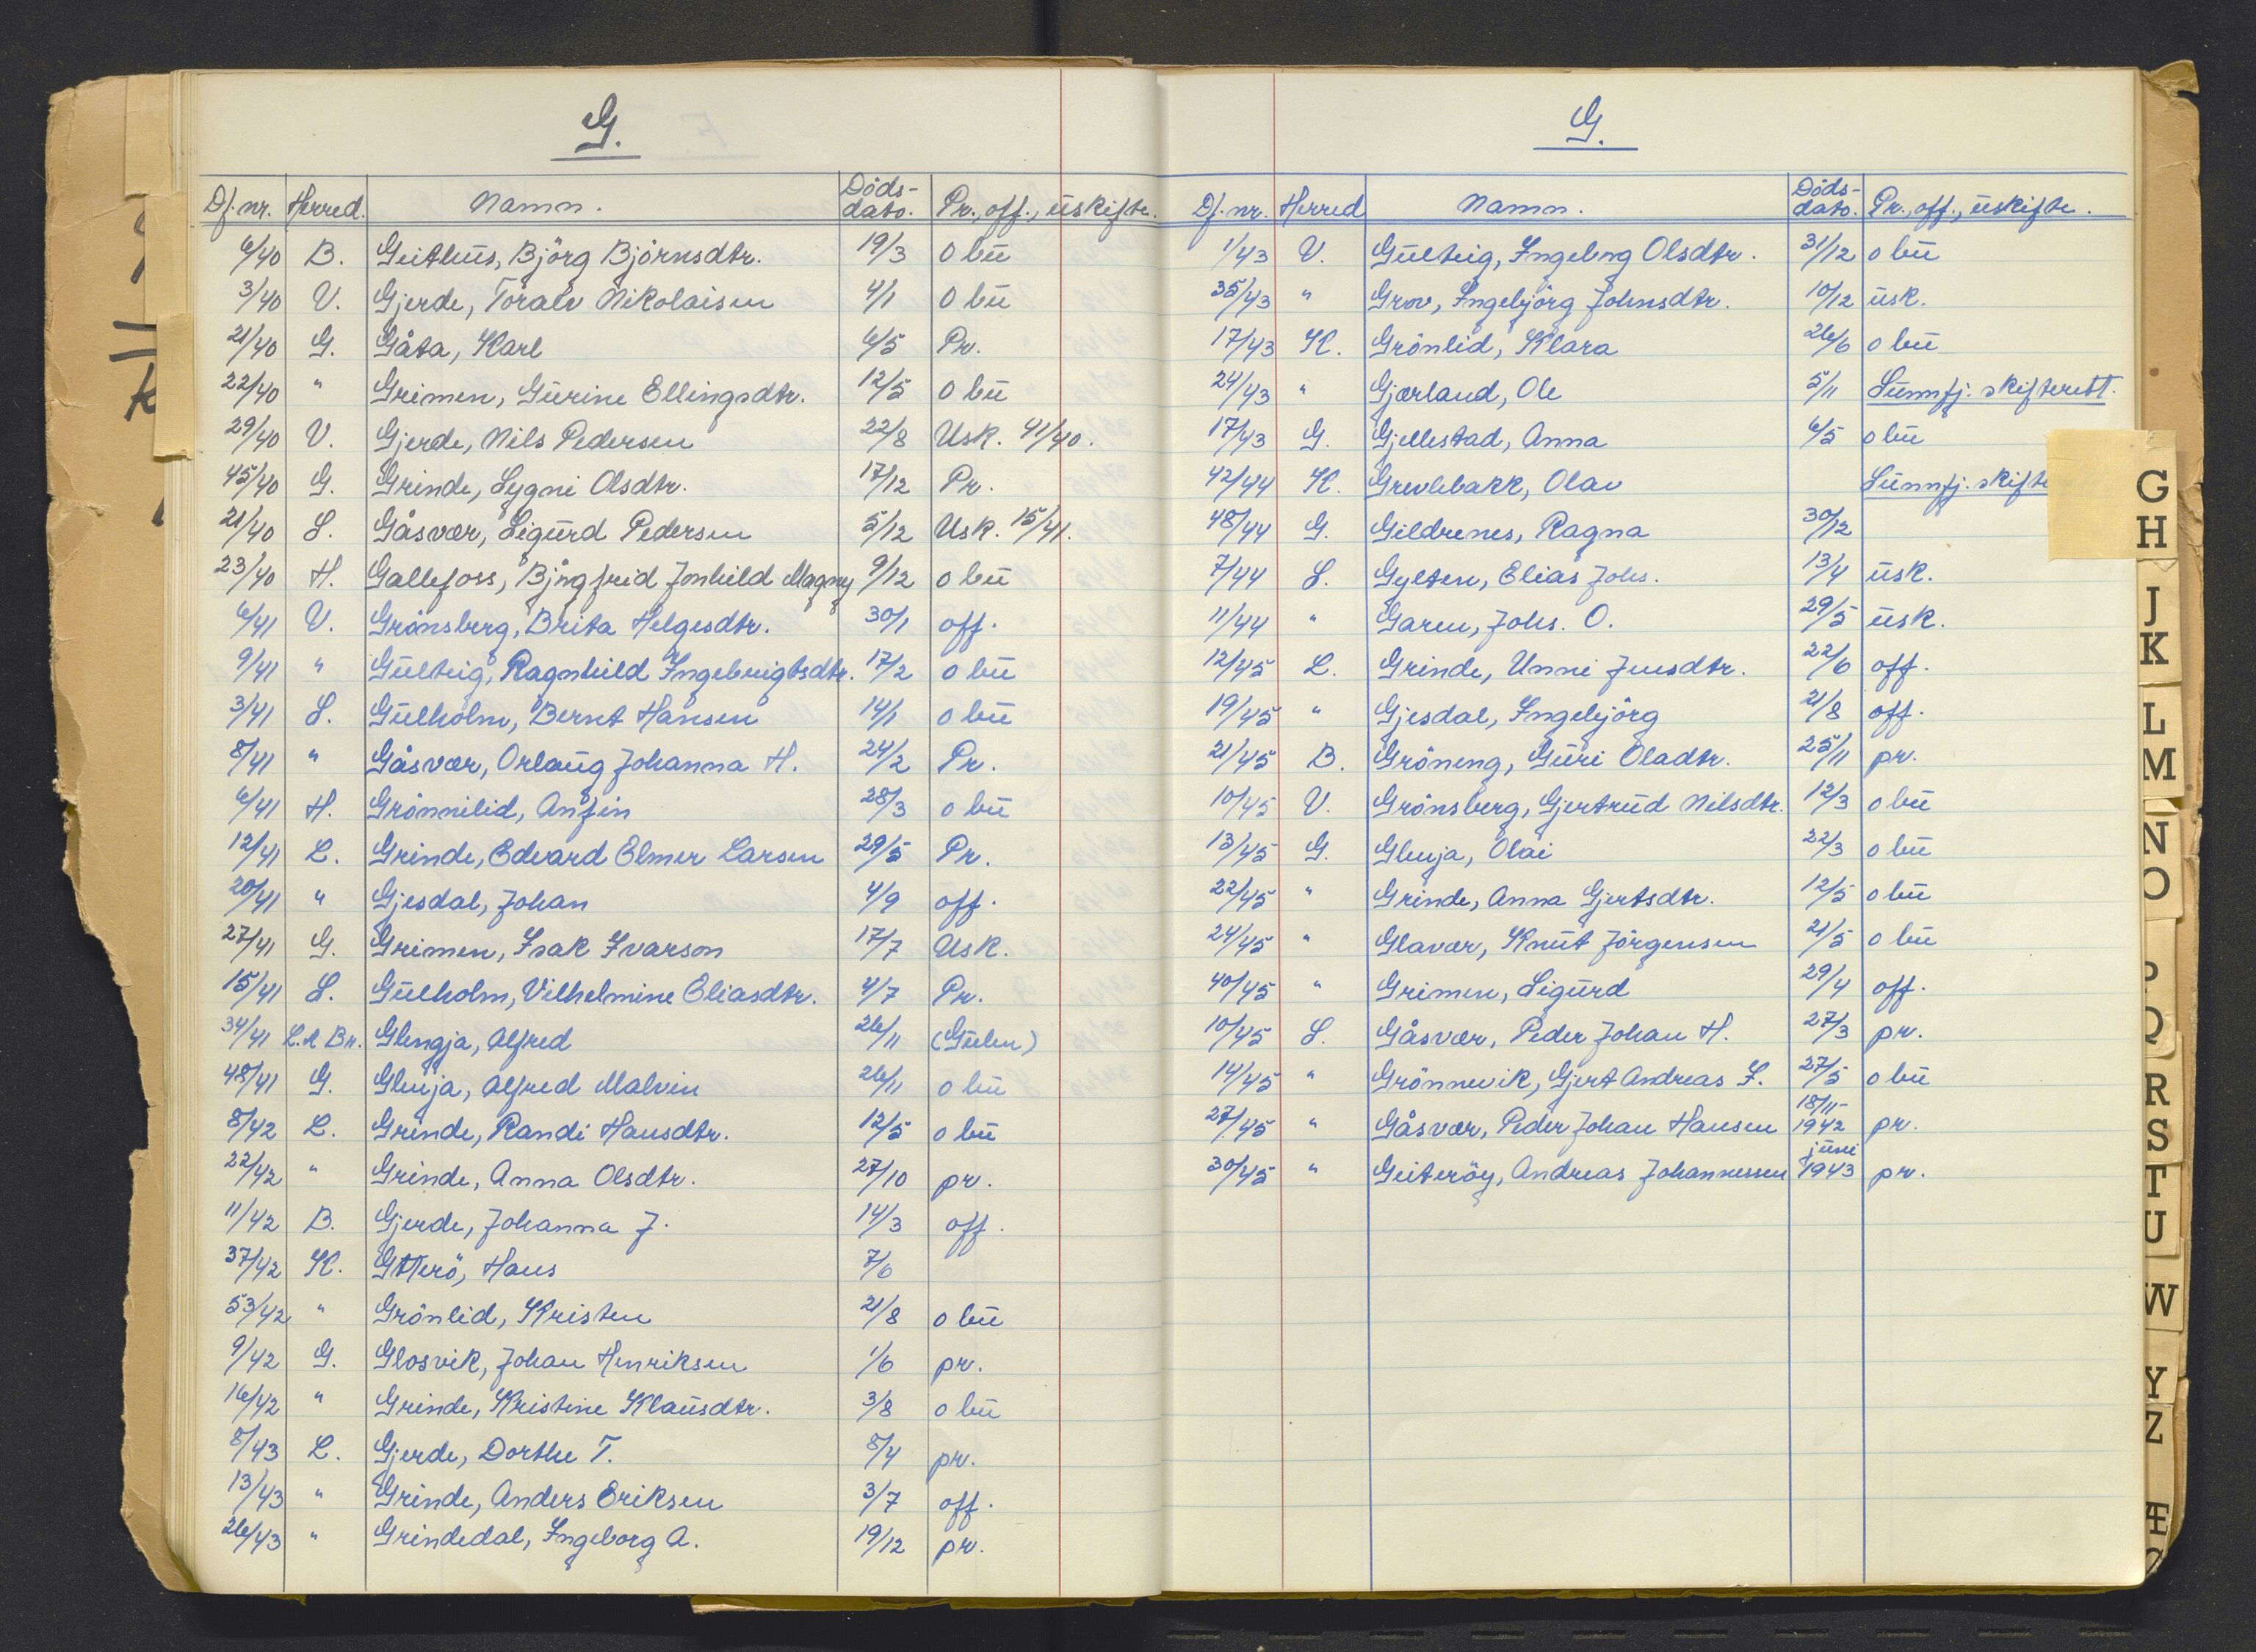 G.
Df. nr. Herred. Namn. Döds-dato. Pr., off., uskifte.
6/40 B. Geithus, Björg Björnsdtr. 19/3 o bu
3/40 V. Gjerde, Toralv Nikolaisen 4/1 o bu
21/40 G. Gåta, Karl 6/5 Pr.
22/40 " Grimen, Gurine Ellingsdtr. 12/5 o bu
29/40 V. Gjerde, Nils Pedersen 22/8 Usk. 41/40.
45/40 G. Grinde, Sygni Olsdtr. 17/12 Pr.
21/40 S. Gåsvær, Sigurd Pedersen 5/12 Usk. 15/41.
23/40 H. Gallefoss, Björgfrid Jonhild Magny 9/12 o bu
6/41 V. Grönsberg, Brita Helgesdtr. 30/1 off.
9/41 " Gulteig, Ragnhild Ingebrigtsdtr. 17/2 o bu
3/41 S. Gulholm, Bernt Hansen 14/1 o bu
8/41 " Gåsvær, Orlaug Johanna H. 24/2 Pr.
6/41 H. Grönnilid, Anfin 28/3 o bu
12/41 L. Grinde, Edvard Elmer Larsen 29/5 Pr.
20/41 " Gjesdal, Johan 4/9 off.
27/41 G. Grimen, Isak Ivarson 17/7 Usk.
15/41 S. Gulholm, Vilhelmine Eliasdtr. 4/7 Pr.
34/41 L. & Br. Glengja, Alfred 26/11 (Gulen)
48/41 G. Glenja, Alfred Malvin 26/11 o bu
8/42 L. Grinde, Randi Hansdtr. 12/5 o bu
22/42 " Grinde, Anna Olsdtr. 27/10 pr.
11/42 B. Gjerde, Johanna J. 14/3 off.
37/42 K. Hans 7/6
53/42 " Grönlid, Kristen 21/8 o bu
9/42 G. Glosvik, Johan Henriksen 1/6 pr.
16/42 " Grinde, Kristine Klausdtr. 3/8 o bu
8/43 L. Gjerde, Dorthe T. 8/4 pr.
13/43 " Grinde, Anders Eriksen 3/7 off.
26/43 " Grindedal, Ingeborg A. 19/12 pr.
G.
Df. nr. Herred Namn. Döds-dato. Pr., off., uskifte.
1/43 V. Gulteig, Ingeborg Olsdtr. 31/12 o bu
35/43 " Grov, Ingebjörg Johnsdtr. 10/12 usk.
17/43 K. Grönlid, Klara 26/6 o bu
24/43 " Gjærland, Ole 5/11 Sunnfj. skifterett.
17/43 G. Gjellestad, Anna 6/5 o bu
42/44 K. Grevlebakk, Olav Sunnfj. skifte
48/44 G. Gildrenes, Ragna 30/12
7/44 S. Gylten, Elias Johs. 13/4 usk.
11/44 " Garen, Johs. O. 29/5 usk.
12/45 L. Grinde, Unni Jensdtr. 22/6 off.
19/45 " Gjesdal, Ingebjörg 21/8 off.
21/45 B. Gröneng, Guri Oladtr. 25/11 pr.
10/45 V. Grönsberg, Gjertrud Nilsdtr. 12/3 o bu
13/45 G. Glenja, Olai 22/3 o bu
22/45 " Grinde, Anna Gjertsdtr. 12/5 o bu
24/45 " Glavær, Knut Jörgensen 21/5 o bu
40/45 " Grimen, Sigurd 29/4 off.
10/45 S. Gåsvær, Peder Johan H. 27/3 pr.
14/45 " Grönnevik, Gjert Andreas I. 27/5 o bu
27/45 " Gåsvær, Peder Johan Hansen 18/11-1942 pr.
30/45 " Geiteröy, Andreas Johannessen juni 1943 pr.
G
H
J
K
L
M
N
O
P
Q
R
S
T
U
W
Y
Z
Æ
Ø